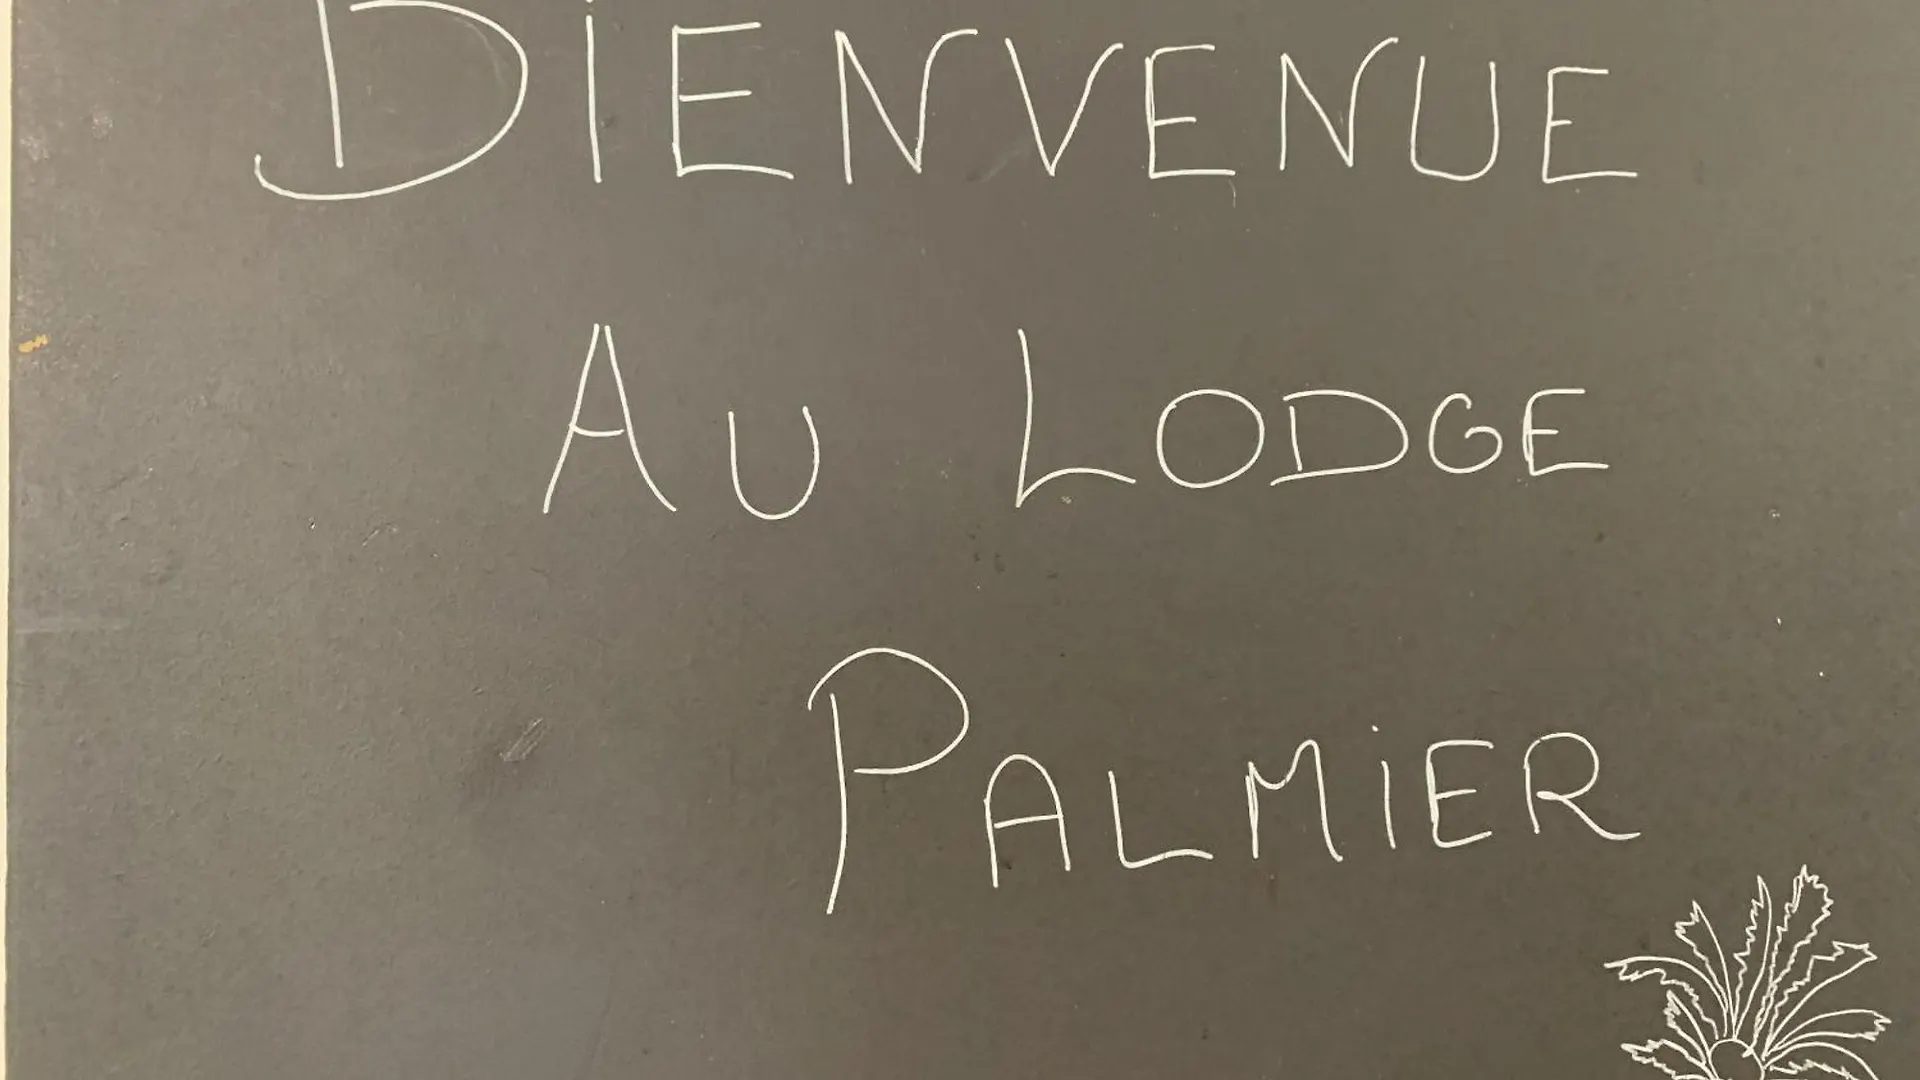 BiENVENUE
AU LODGE
PALMiER